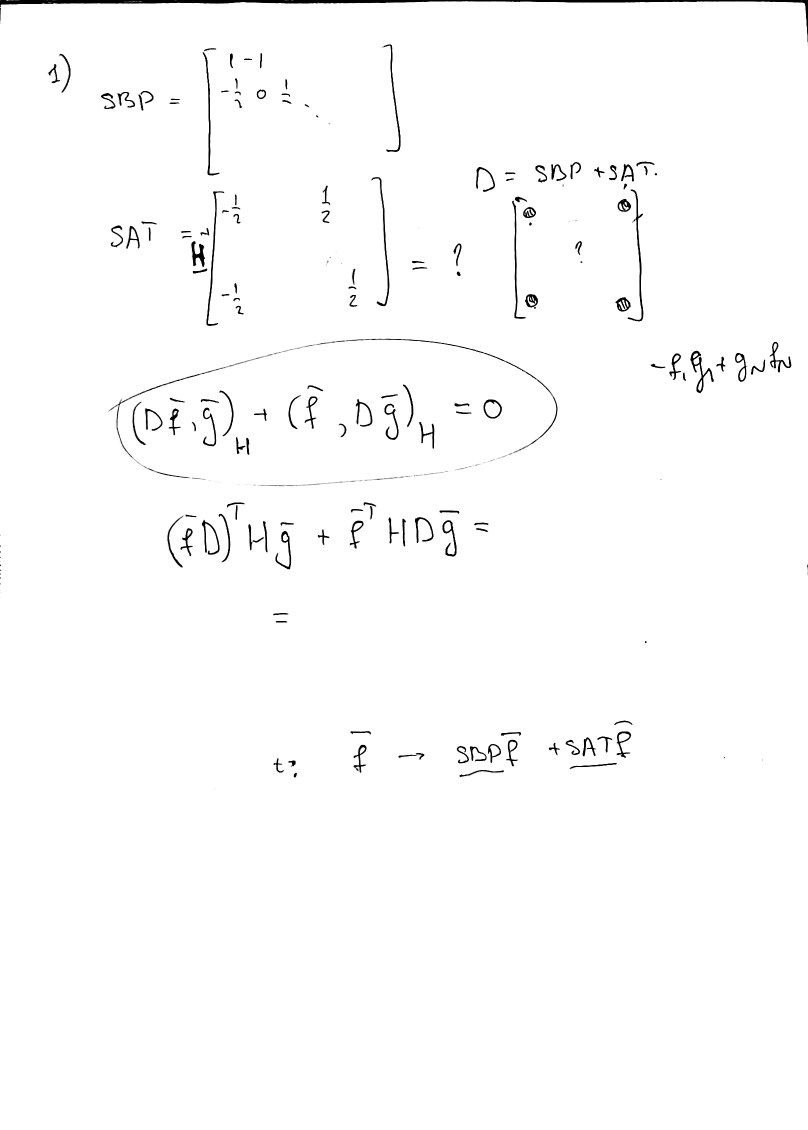 1)
SBP = [ 1 -1
-1/2 0 1/2 ⋱ ]
D = SBP + SAT.
SAT = H [ -1/2 1/2
-1/2 1/2 ] = ? [ ? ]
-f₁g₁ + g_N f_N
(D f̄, ḡ)_H + (f̄, D ḡ)_H = 0
(f̄D)ᵀ H ḡ + f̄ᵀ H D ḡ =
=
t: f̄ → SBP f̄ + SAT f̄